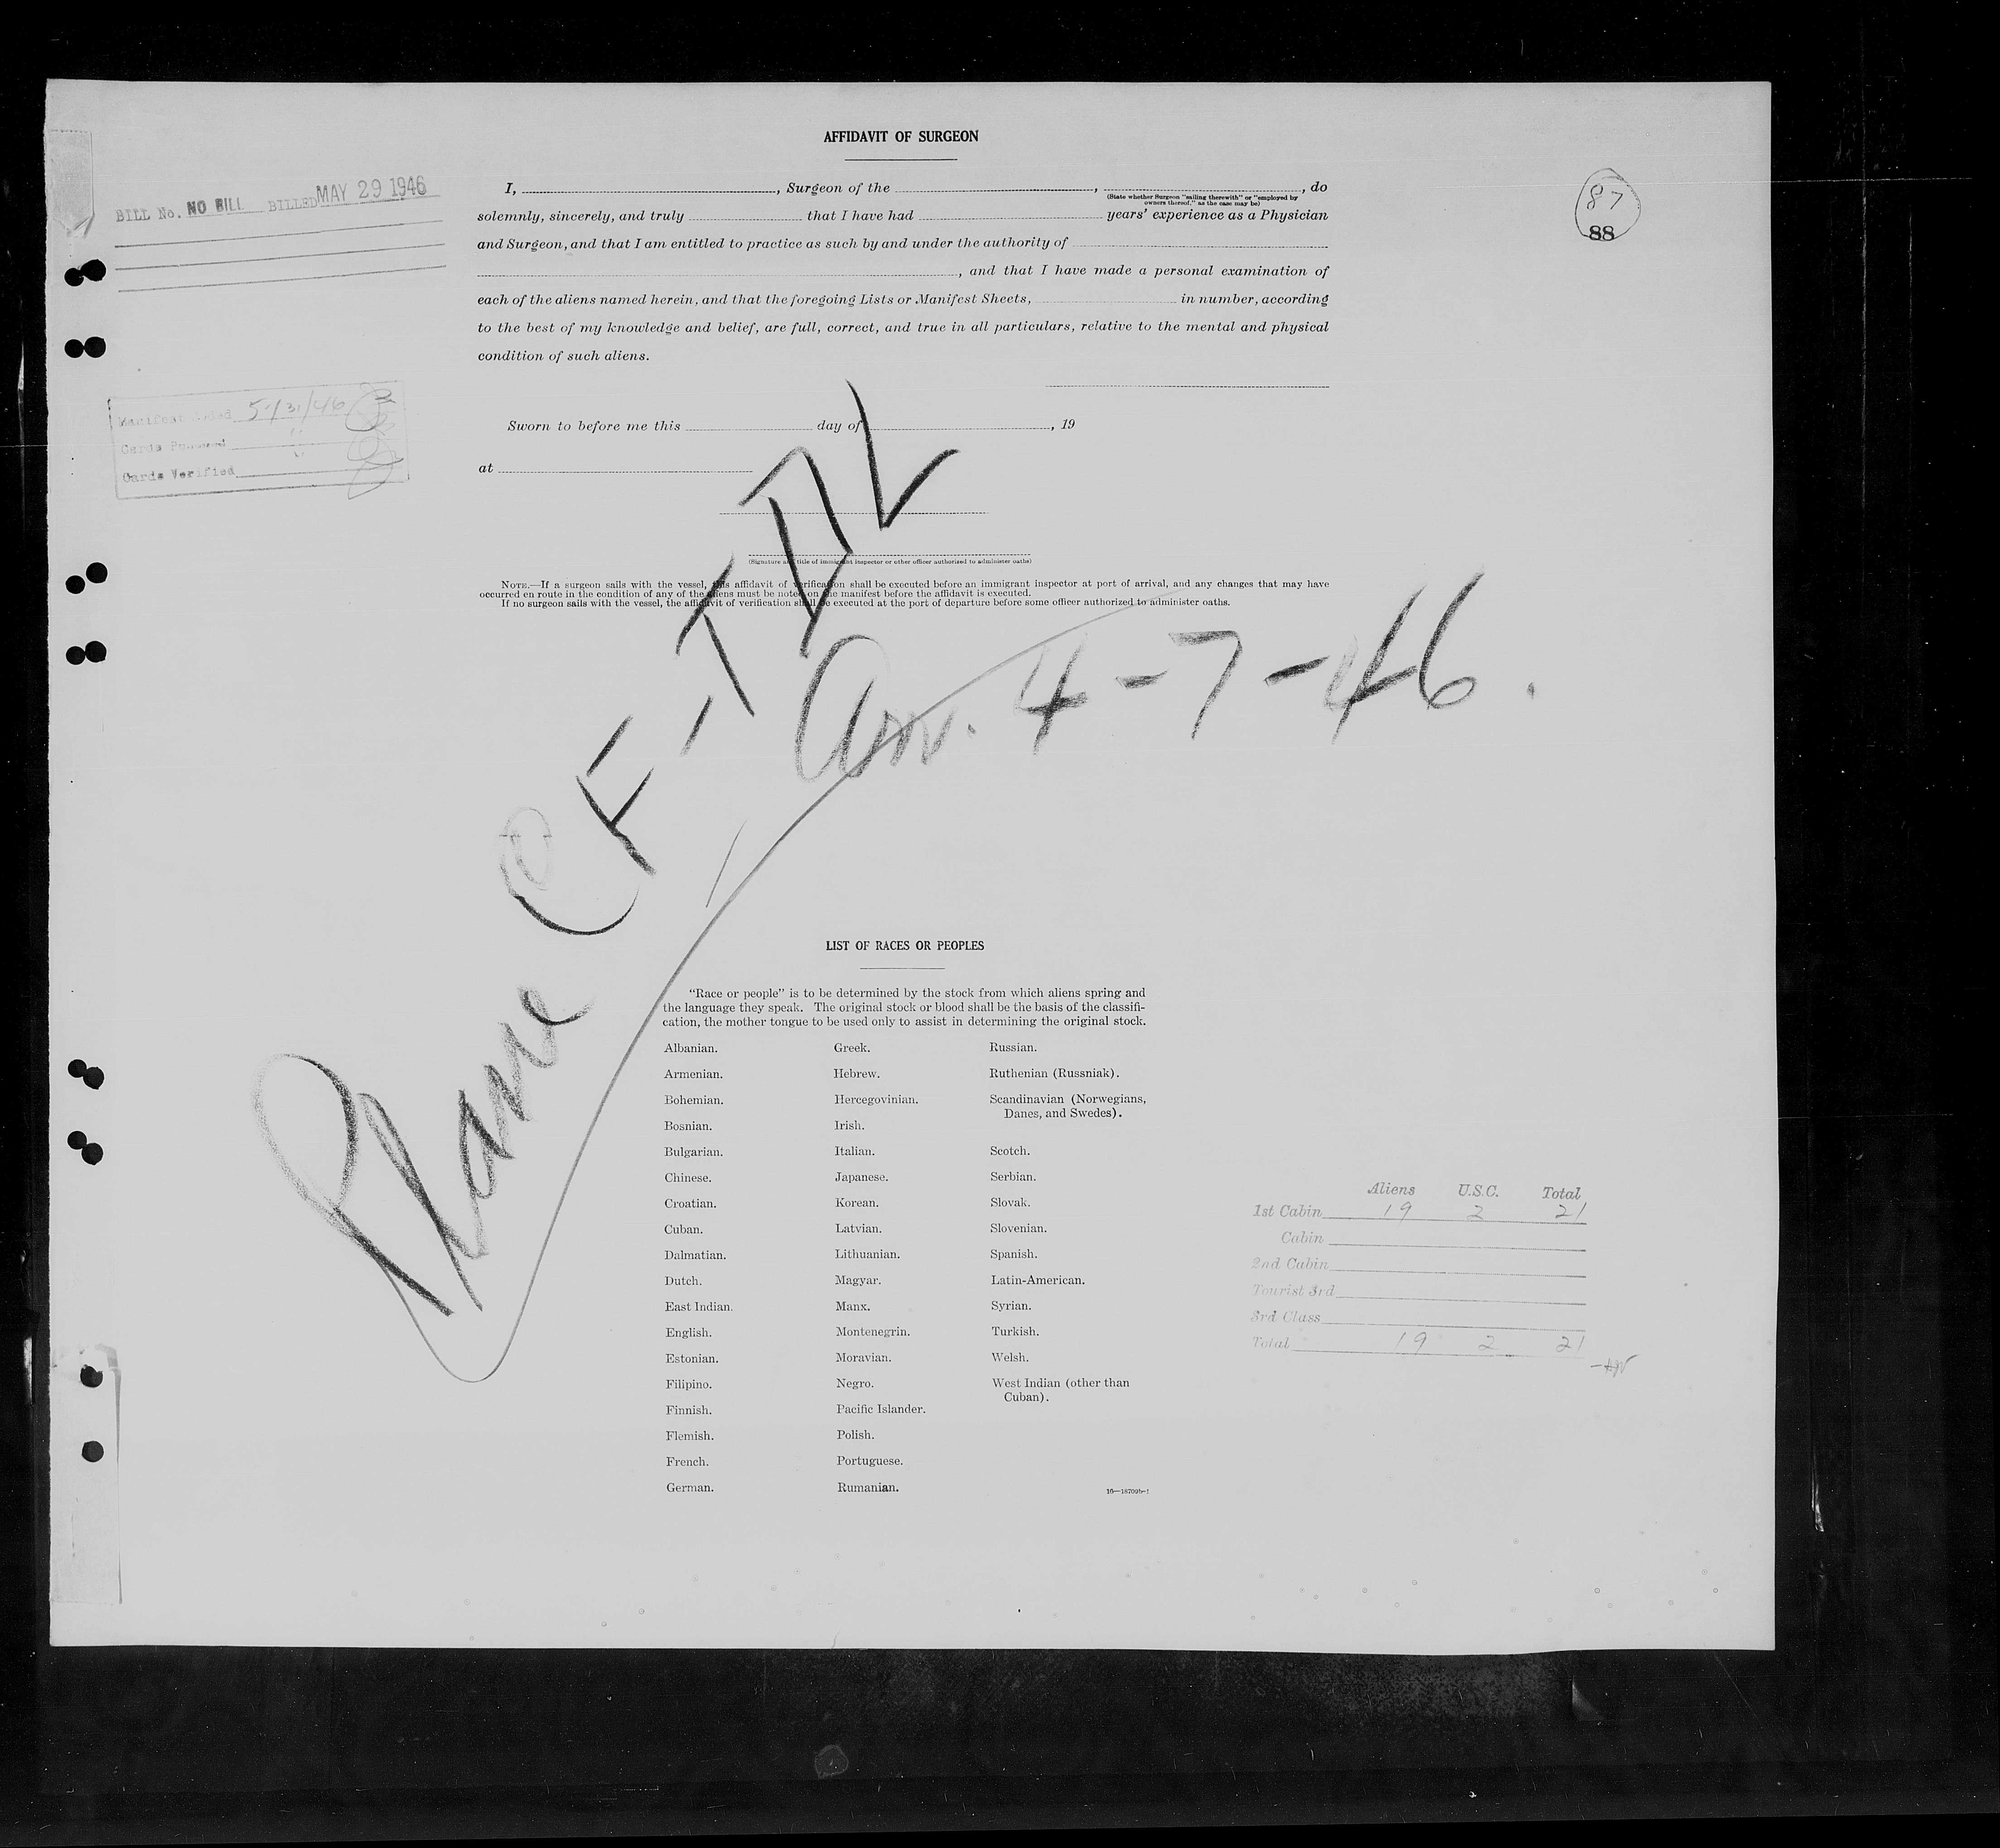 AFFIDAVIT OF SURGEON
BILL No. NO BILL BILLED MAY 29 1946
87
88
I, , Surgeon of the , , do
(State whether Surgeon "sailing therewith" or "employed by
owners thereof," as the case may be)
solemnly, sincerely, and truly that I have had years' experience as a Physician
and Surgeon, and that I am entitled to practice as such by and under the authority of
, and that I have made a personal examination of
each of the aliens named herein, and that the foregoing Lists or Manifest Sheets, in number, according
to the best of my knowledge and belief, are full, correct, and true in all particulars, relative to the mental and physical
condition of such aliens.
Manifest 5/31/46
Cards
Cards Verified
Sworn to before me this day of , 19
at
(Signature and title of immigrant inspector or other officer authorized to administer oaths)
NOTE.—If a surgeon sails with the vessel, this affidavit of verification shall be executed before an immigrant inspector at port of arrival, and any changes that may have
occurred en route in the condition of any of the aliens must be noted on the manifest before the affidavit is executed.
If no surgeon sails with the vessel, the affidavit of verification shall be executed at the port of departure before some officer authorized to administer oaths.
Plane CF-TDL
Arr. 4-7-46.
LIST OF RACES OR PEOPLES
"Race or people" is to be determined by the stock from which aliens spring and
the language they speak. The original stock or blood shall be the basis of the classifi-
cation, the mother tongue to be used only to assist in determining the original stock.
Albanian. Greek. Russian.
Armenian. Hebrew. Ruthenian (Russniak).
Bohemian. Hercegovinian. Scandinavian (Norwegians,
Danes, and Swedes).
Bosnian. Irish.
Bulgarian. Italian. Scotch.
Chinese. Japanese. Serbian.
Croatian. Korean. Slovak.
Cuban. Latvian. Slovenian.
Dalmatian. Lithuanian. Spanish.
Dutch. Magyar. Latin-American.
East Indian. Manx. Syrian.
English. Montenegrin. Turkish.
Estonian. Moravian. Welsh.
Filipino. Negro. West Indian (other than
Cuban).
Finnish. Pacific Islander.
Flemish. Polish.
French. Portuguese.
German. Rumanian.
16—18709b-1
Aliens U.S.C. Total
1st Cabin 19 2 21
Cabin
2nd Cabin
Tourist 3rd
3rd Class
Total 19 2 21